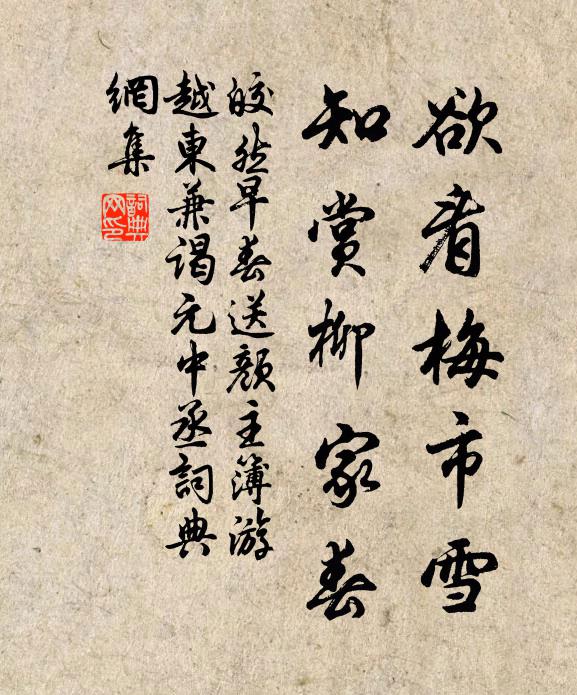 欲看梅市雪
知赏柳家春
皎然早春送颜主簿游
越东兼谒元中丞词典
网集
词典网印